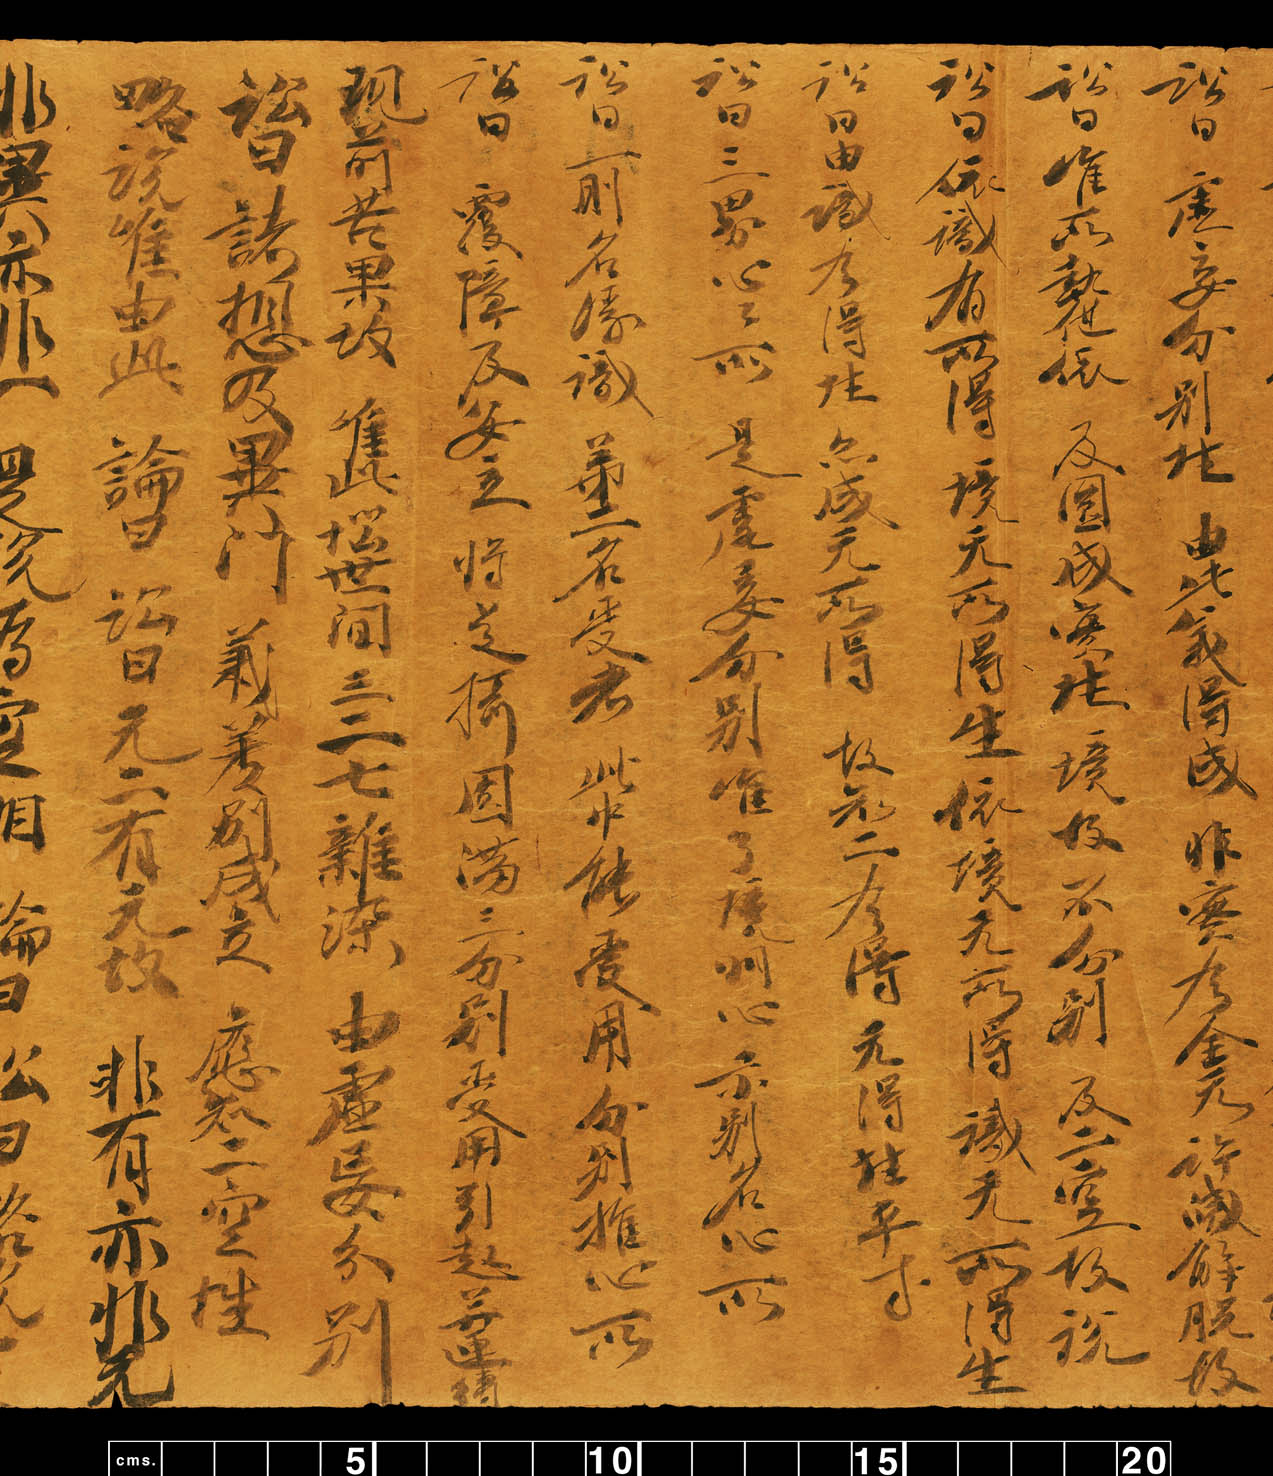 訟曰 虛妄分別性 由此義得成 非實有全无 許滅解脫故
訟曰唯所執他依 及圓成實性 境故不分別 及二空故說
訟曰依識有所得 境无所得生 依境无所得 識无所得生
訟曰由識有得性 亦成无所得 故知二有得 无得性平等
訟曰三界心々所 是虛妄分別 唯了境 心 亦別名心所
訟曰一則名緣識 第二名受者 此中能受用 分別推心所
訟曰 覆障及安立 將 攝圓滿 三分別受用 引起并連縛
現前苦果故 唯此惱世間 三二七雜染 由虛妄分別
訟曰諸想及異門 義差別成立 應知二空性
略說唯由此 論曰 訟曰 无二有无故 非有亦非无
非異亦非一 是說為空相 論曰 訟曰 略說
cms. 5 10 15 20